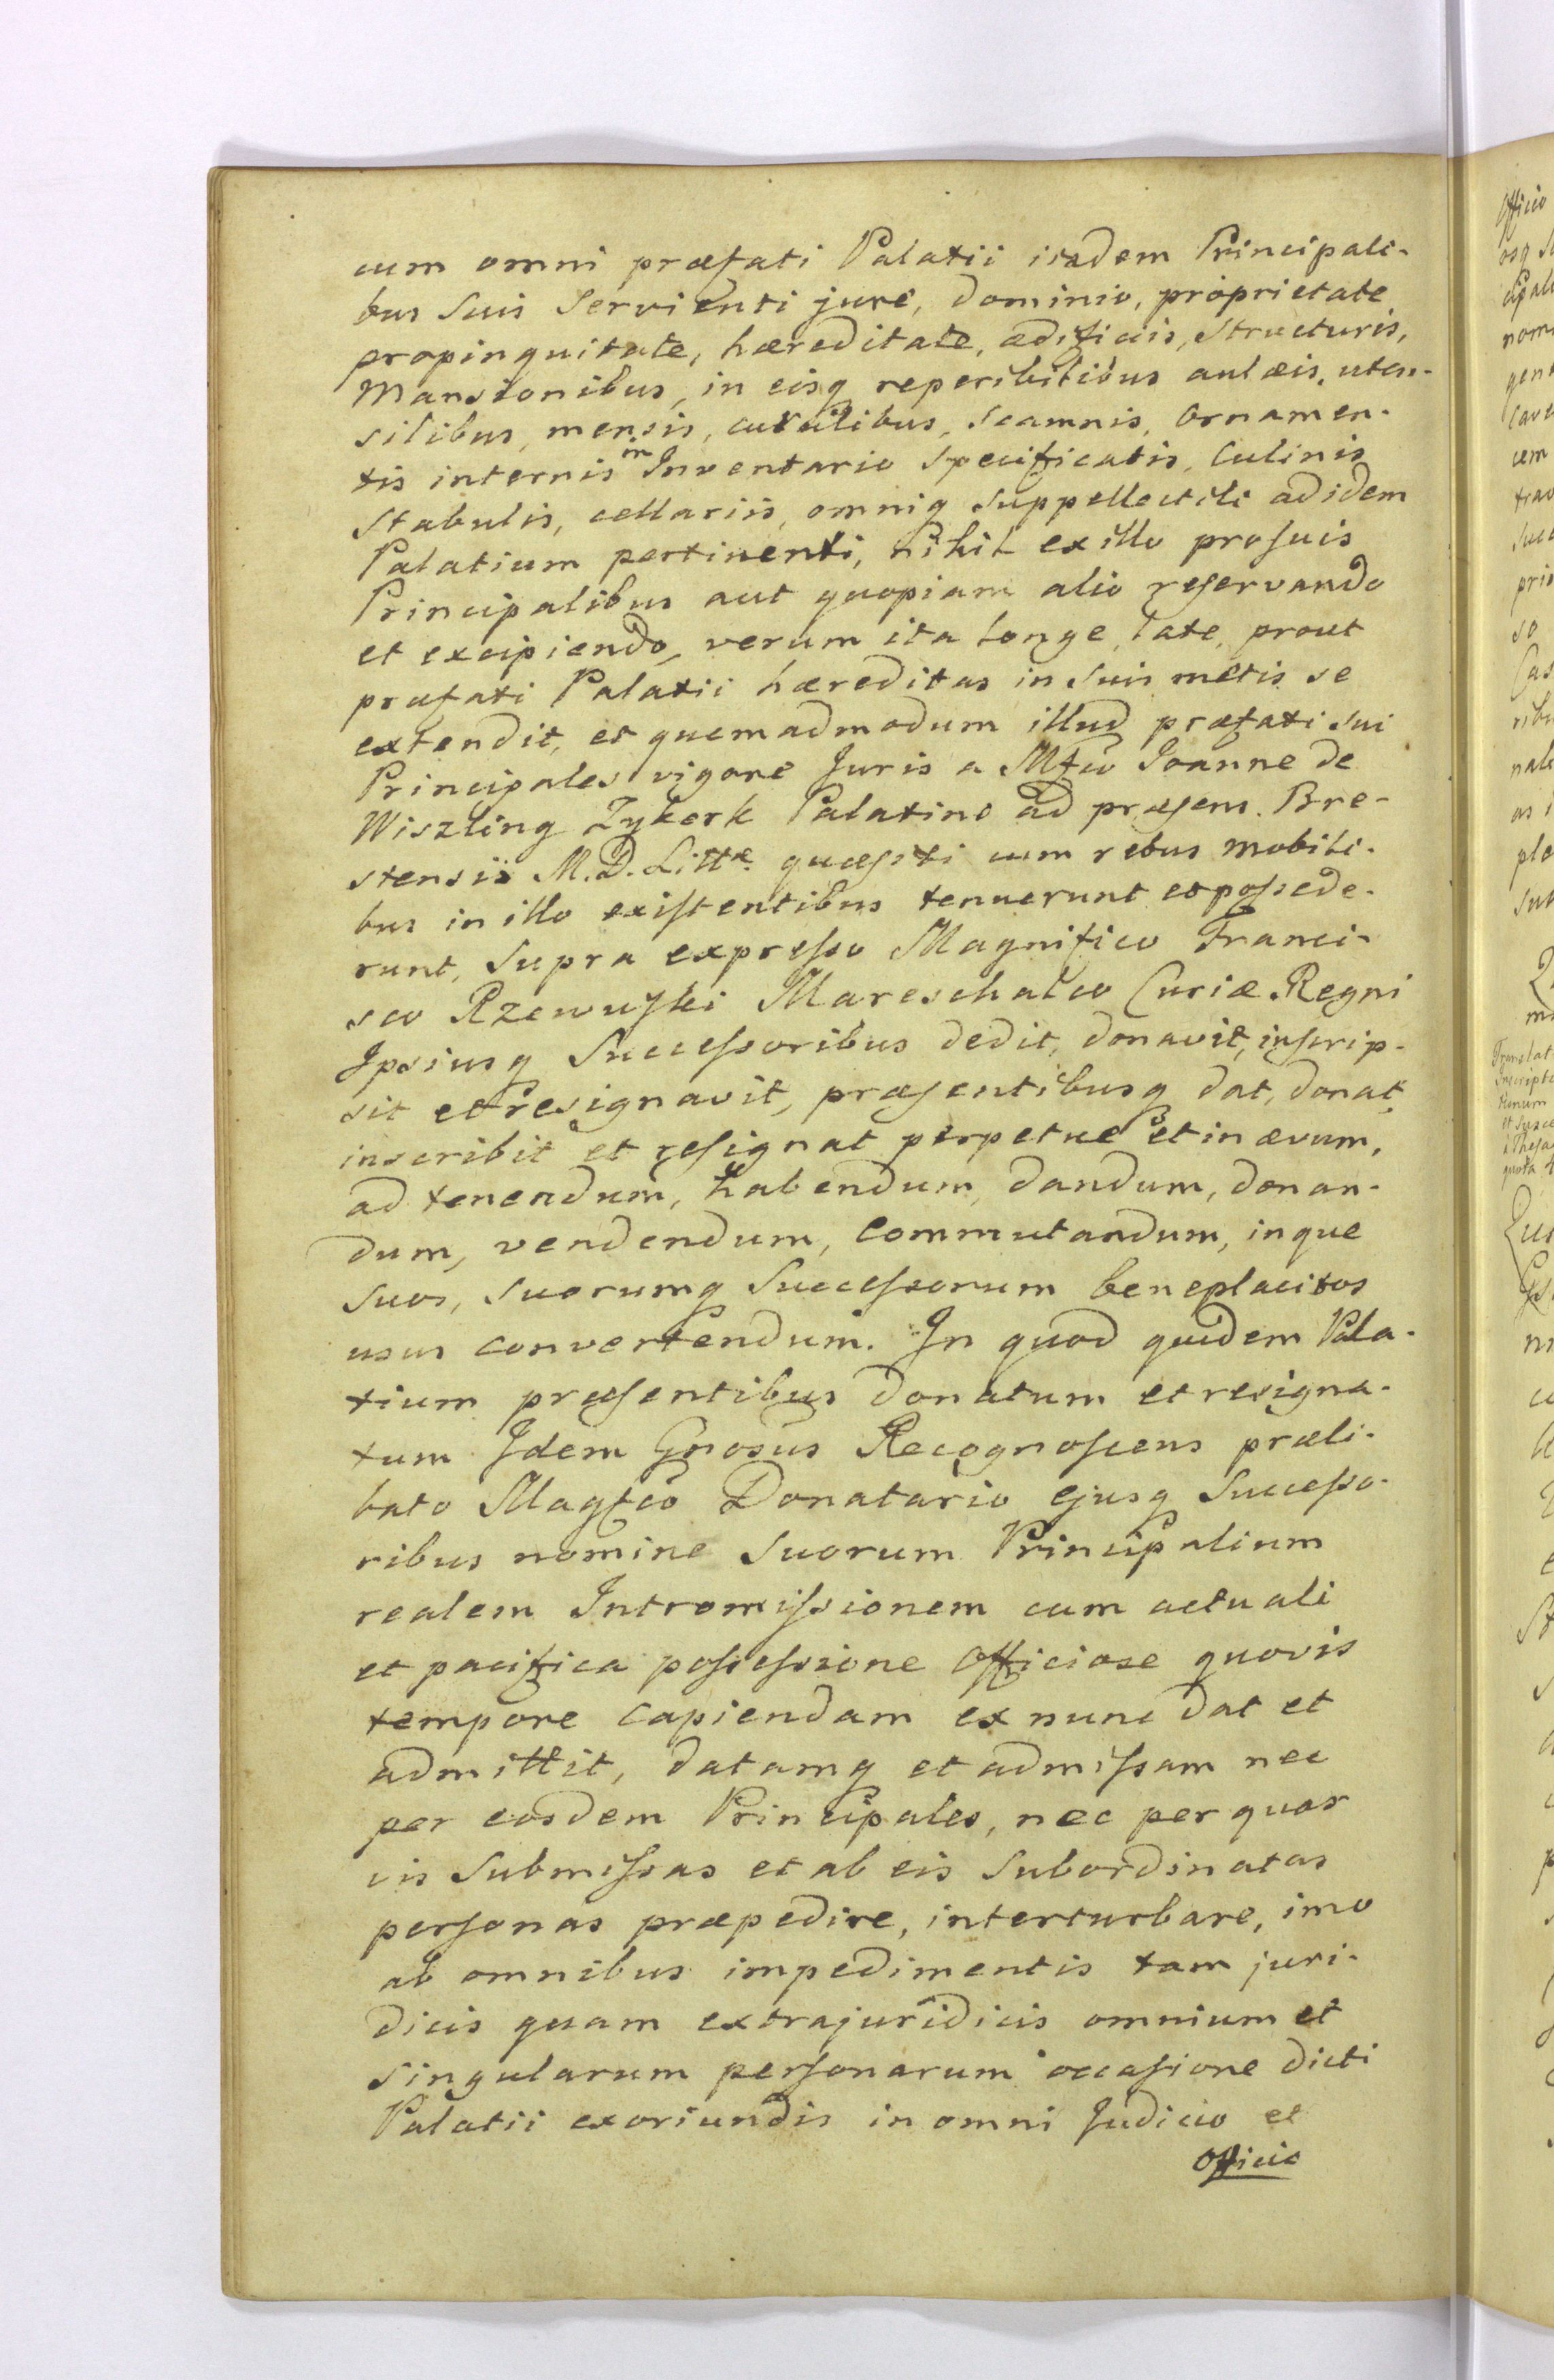 cum omni præfati Palatii iisdem Principali-
bus suis servienti jure, dominio, proprietate
propinquitate, hæreditate, ædificiis, structuris,
Mansionibus, in eisq reperibilibus aulæis, uten-
silibus, mensis, curulibus, scamnis, Ornamen-
tis internis in Inventario specificatis, Culinis
Stabulis, cellariis, omniq suppellectili ad idem
Palatium pertinenti, nihil ex illo pro suis
Principalibus aut quopiam alio reservando
et excipiendo, verum ita longe, late, prout
præfati Palatii hæreditas in suis metis se
extendit, et quemadmodum illud præfati sui
Principales vigore Juris a Mfco Joanne de
Wiszling Zyberk Palatino ad præsens Bre-
stensis M.D.Littæ quæsiti cum rebus mobili-
bus in illo existentibus tenuerunt et possede-
runt, supra expresso Magnifico Franci-
sco Rzewuski Mareschalco Curiæ Regni
Ipsiusq Successoribus dedit, donavit, inscrip-
sit et resignavit, præsentibusq dat, donat,
inscribit et resignat perpetue et in ævum,
ad tenendum, habendum, dandum, donan-
dum, vendendum, commutandum, inque
suos, suorumq Successorum beneplacitos
usus convertendum. In quod quidem Pala-
tium præsentibus donatum et resigna-
tum Idem Gnosus Recognoscens præli-
bato Magfco Donatario ejusq Successo-
ribus nomine suorum Principalium
realem Intromissionem cum actuali
et pacifica possessione Officiose quovis
tempore capiendam ex nunc dat et
admittit, datamq et admissam nec
per eosdem Principales, nec per quas
vis submissas et ab eis subordinatas
personas præpedire, interturbare, imo
ab omnibus impedimentis tam juri-
dicis quam extrajuridicis omnium et
singularum personarum occasione dicti
Palatii exoriundis in omni Judicio et
Officio